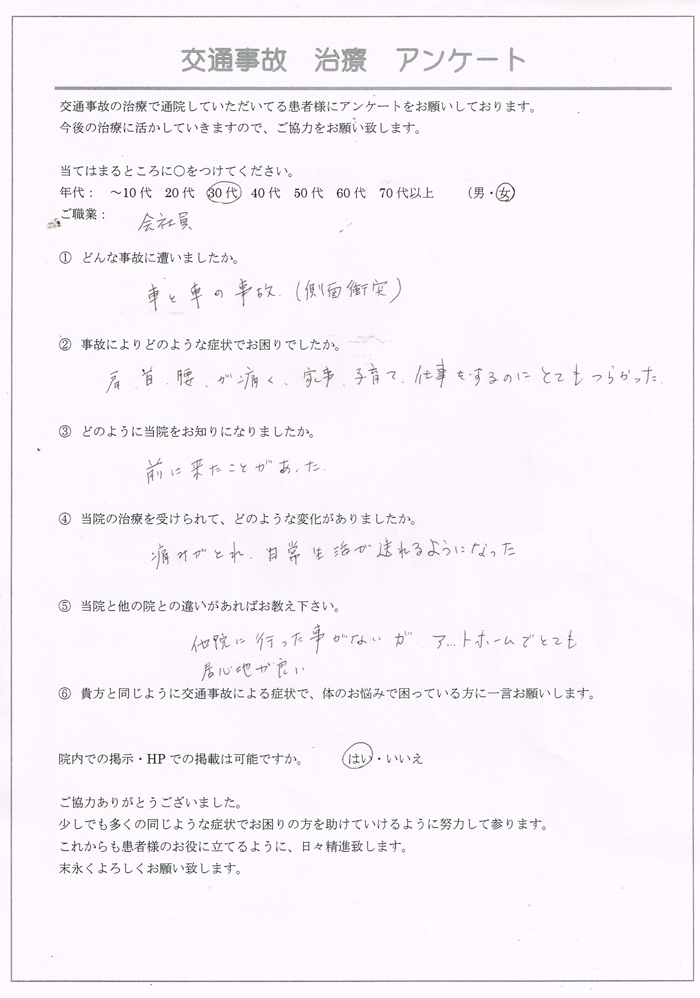 交通事故 治療 アンケート
交通事故の治療で通院していただいてる患者様にアンケートをお願いしております。
今後の治療に活かしていきますので、ご協力をお願い致します。
当てはまるところに○をつけてください。
年代： ～10代 20代 30代 40代 50代 60代 70代以上 （男・女）
ご職業：
会社員
① どんな事故に遭いましたか。
車と車の事故.（側面衝突）
② 事故によりどのような症状でお困りでしたか。
肩、首、腰、が痛く、家事、子育て、仕事をするのにとてもつらかった.
③ どのように当院をお知りになりましたか。
前に来たことがあった.
④ 当院の治療を受けられて、どのような変化がありましたか。
痛みがとれ、日常生活が送れるようになった
⑤ 当院と他の院との違いがあればお教え下さい。
他院に行った事がないが アットホームでとても
居心地が良い
⑥ 貴方と同じように交通事故による症状で、体のお悩みで困っている方に一言お願いします。
院内での掲示・HPでの掲載は可能ですか。 はい・いいえ
ご協力ありがとうございました。
少しでも多くの同じような症状でお困りの方を助けていけるように努力して参ります。
これからも患者様のお役に立てるように、日々精進致します。
末永くよろしくお願い致します。